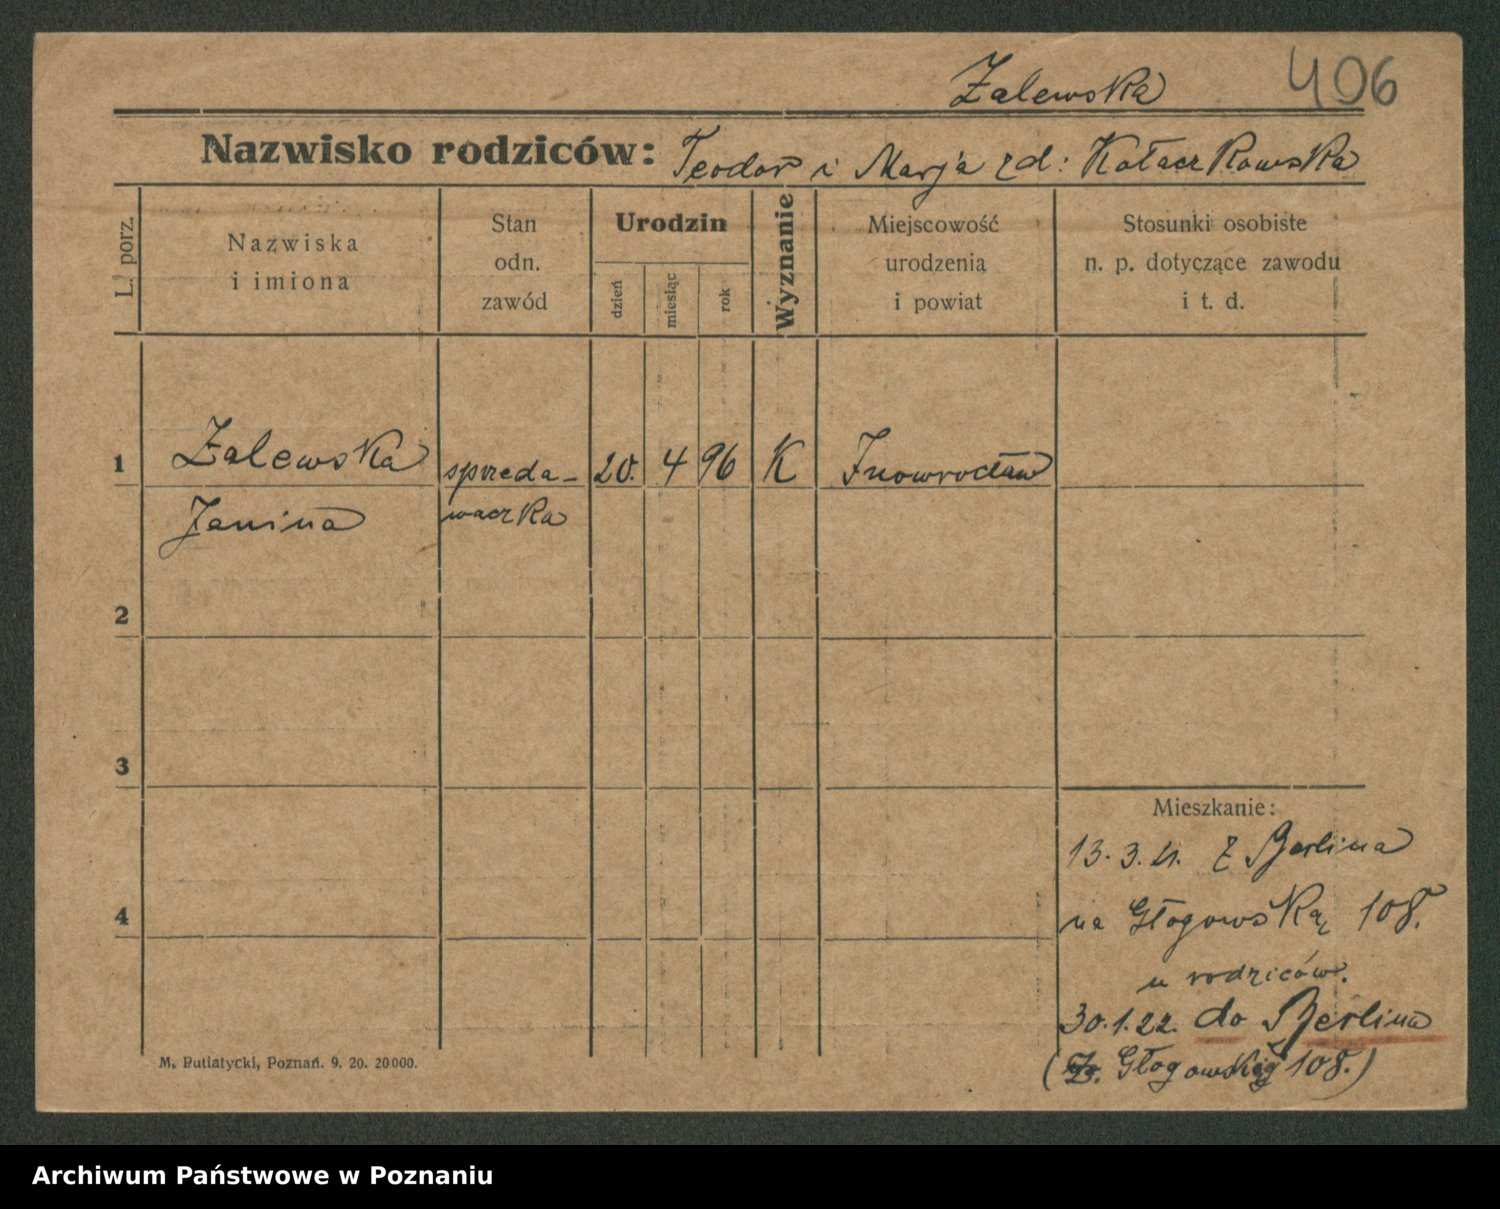 Zalewska 406
Nazwisko rodziców: Teodor i Marja zd: Kołaczkowska
L. porz.
Nazwiska
i imiona
Stan
odn.
zawód
Urodzin
dzień
miesiąc
rok
Wyznanie
Miejscowość
urodzenia
i powiat
Stosunki osobiste
n. p. dotyczące zawodu
i t. d.
1 Zalewska sprzeda- 20. 4 96 K Inowrocław
Janina waczka
2
3
Mieszkanie:
13. 3. 21. z Berlina
4
na Głogowską 108.
u rodziców.
30. 1. 22. do Berlina
(Głogowska 108.)
M. Putiatycki, Poznań. 9. 20. 20000.
Archiwum Państwowe w Poznaniu